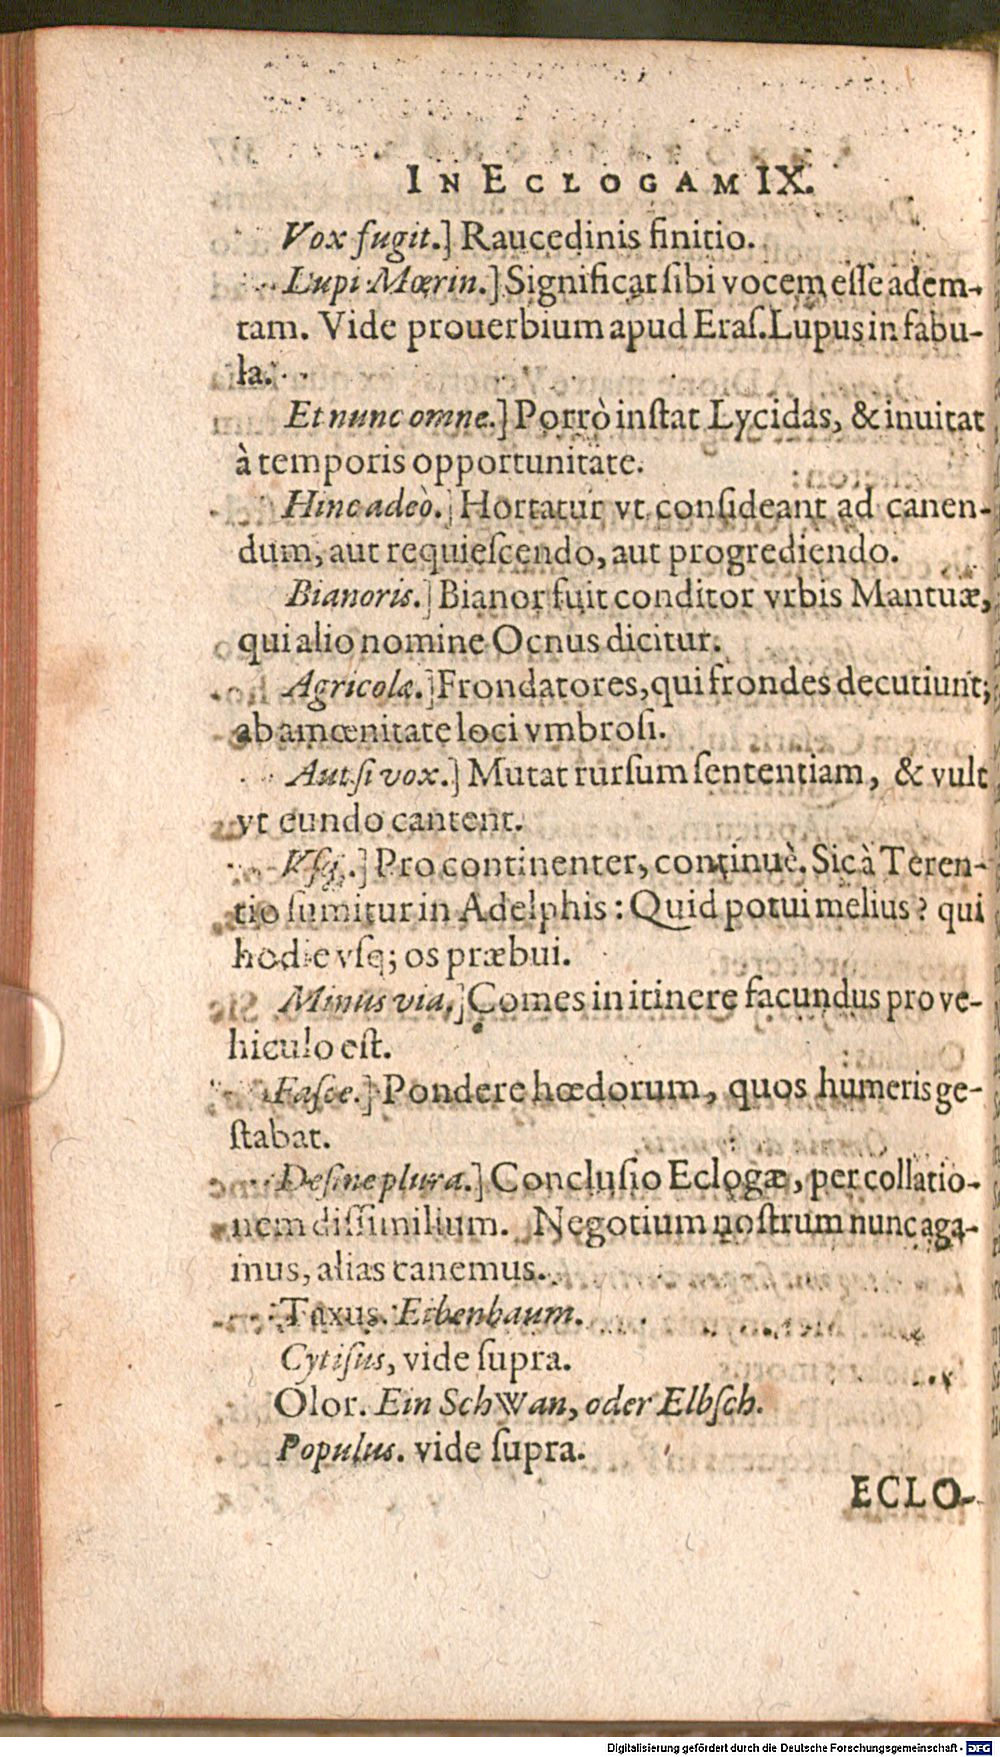 IN ECLOGAM IX.
Vox fugit.] Raucedinis finitio.
Lupi Mœrin.] Significat ſibi vocem eſſe adem-
tam. Vide prouerbium apud Eraſ. Lupus in fabu-
la.
Et nunc omne.] Porrò inſtat Lycidas, & inuitat
à temporis opportunitate.
Hinc adeò.] Hortatur vt conſideant ad canen-
dum, aut requieſcendo, aut progrediendo.
Bianoris.] Bianor fuit conditor vrbis Mantuæ,
qui alio nomine Ocnus dicitur.
Agricolæ.] Frondatores, qui frondes decutiunt;
ab amœnitate loci vmbroſi.
Aut ſi vox.] Mutat rurſum ſententiam, & vult
vt eundo cantent.
Vſq;.] Pro continenter, continuè. Sic à Teren-
tio ſumitur in Adelphis: Quid potui melius? qui
hodie vſq; os præbui.
Minus via.] Comes in itinere facundus pro ve-
hiculo eſt.
Faſce.] Pondere hœdorum, quos humeris ge-
ſtabat.
Deſine plura.] Concluſio Eclogæ, per collatio-
nem diſſimilium. Negotium noſtrum nunc aga-
mus, alias canemus.
Taxus. Eibenbaum.
Cytiſus, vide ſupra.
Olor. Ein SchWan, oder Elbſch.
Populus. vide ſupra.
ECLO-
Digitalisierung gefördert durch die Deutsche Forschungsgemeinschaft - DFG